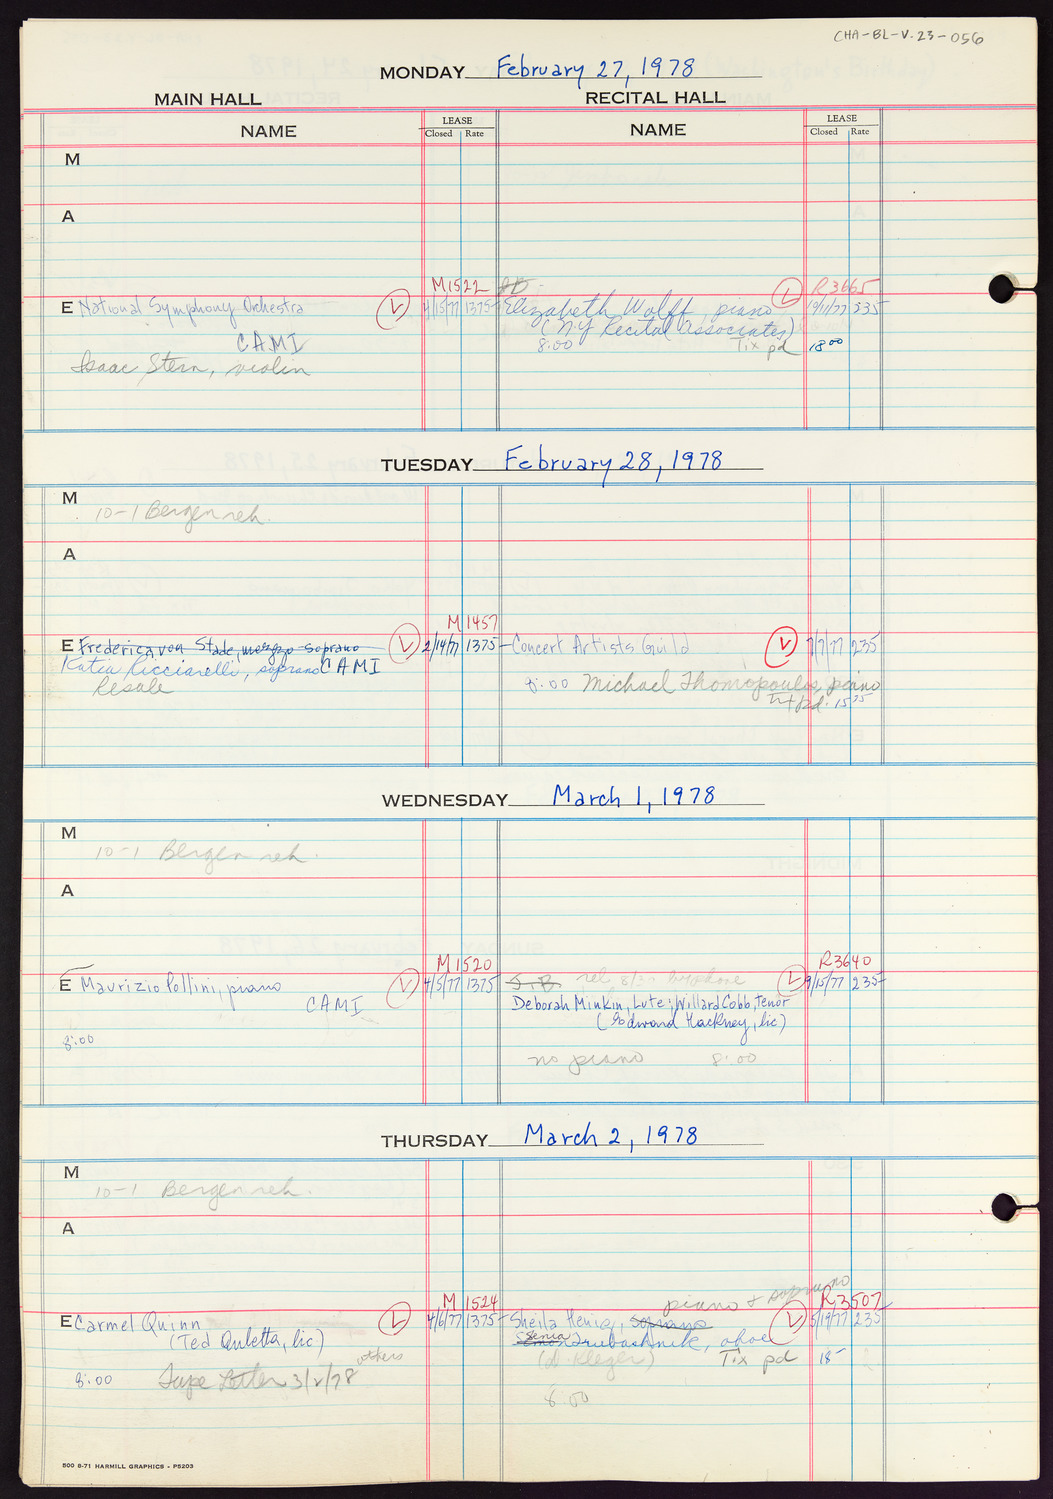 CHA-BL-V.23-056
MONDAY February 27, 1978
MAIN HALL RECITAL HALL
NAME LEASE Closed Rate NAME LEASE Closed Rate
M
A
M1522 R3665
E National Symphony Orchestra L 4/15/77 1375 Elizabeth Wolff, piano L 335
CAMI (N.Y Recital Associates)
8:00 Tix pd 18 00
Isaac Stern, violin
TUESDAY February 28, 1978
M
10-1 Bergen reh.
A
M1457
E Frederica von Stade, mezzo-soprano L 2/14/77 1375 Concert Artists Guild L 7/7/77 235
Katia Ricciarelli, soprano CAMI
Resale 8:00 Michael Thomopoulos, piano
Tix pd. 15 35
WEDNESDAY March 1, 1978
M
10-1 Bergen reh.
A
M1520 R3640
E Maurizio Pollini, piano L 4/5/77 1375 L 9/15/77 235
CAMI Deborah Minkin, Lute; Willard Cobb, tenor
(Edward Hackney, lic)
8:00
no piano 8:00
THURSDAY March 2, 1978
M
10-1 Bergen reh.
A
piano + soprano
M 1524 R3507
E Carmel Quinn L 4/6/77 1375 Sheila Henig, soprano L 5/19/77 235
(Ted Quletta, lic) Senia Trubashnik, oboe
(D. Kleger) Tix pd 18-
8:00 Tape Letter 3/2/78 others
8:00
500 8-71 HARMILL GRAPHICS - P5203